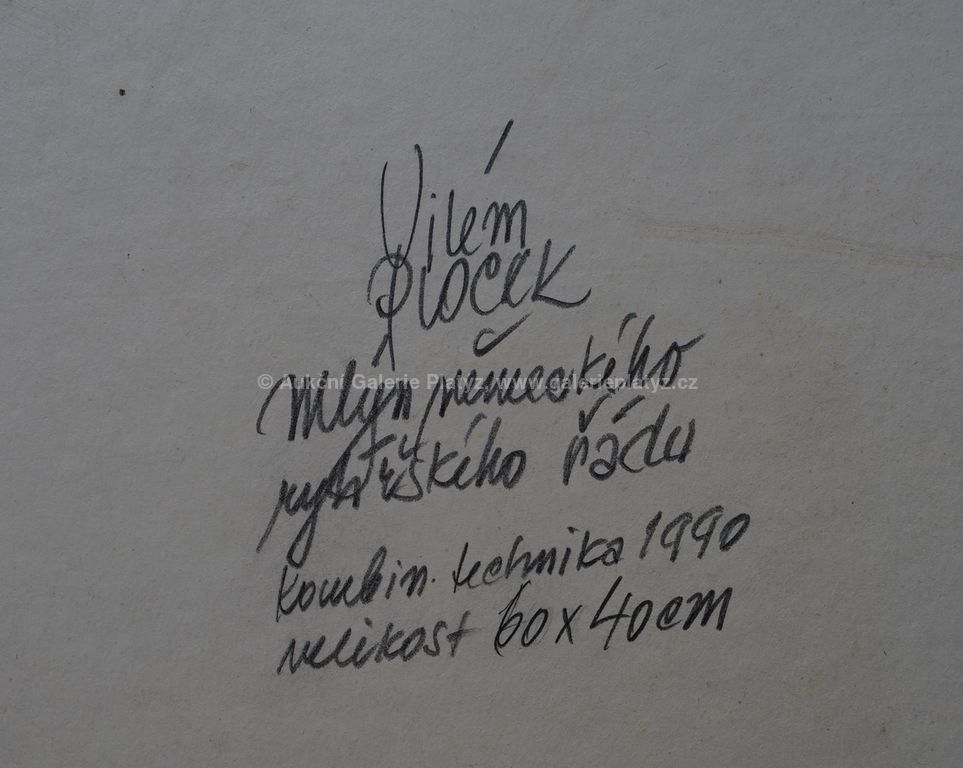 Vilém
Plocek
© Aukční Galerie Platýz, www.galerieplatyz.cz
Mlýn německého
rytířského řádu
kombin. technika 1990
velikost 60 x 40 cm